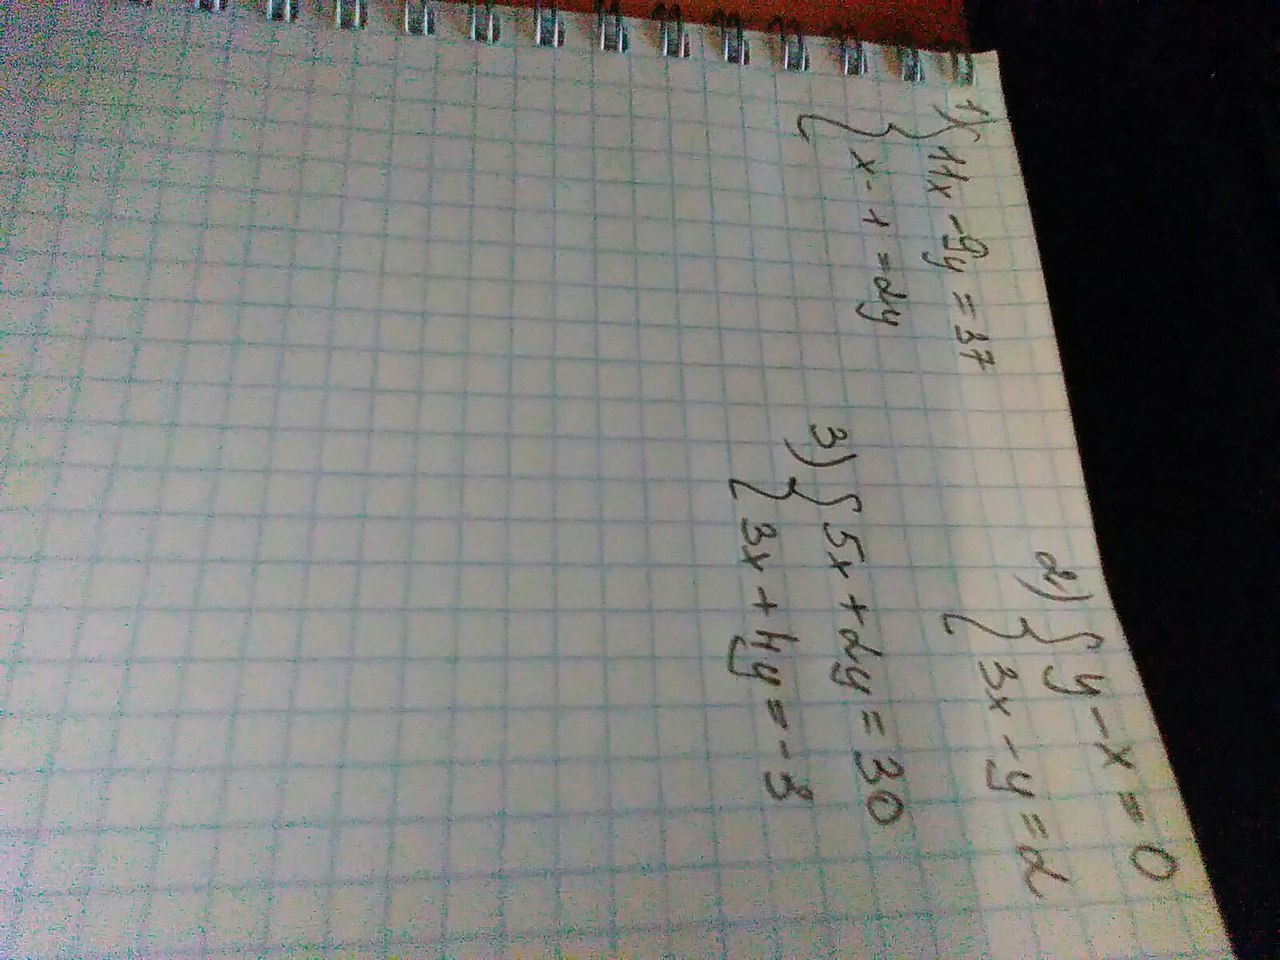 1) { 11x - 9y = 37
x - 1 = 2y
2) { y - x = 0
3x - y = 2
3) { 5x + 2y = 30
3x + 4y = -3